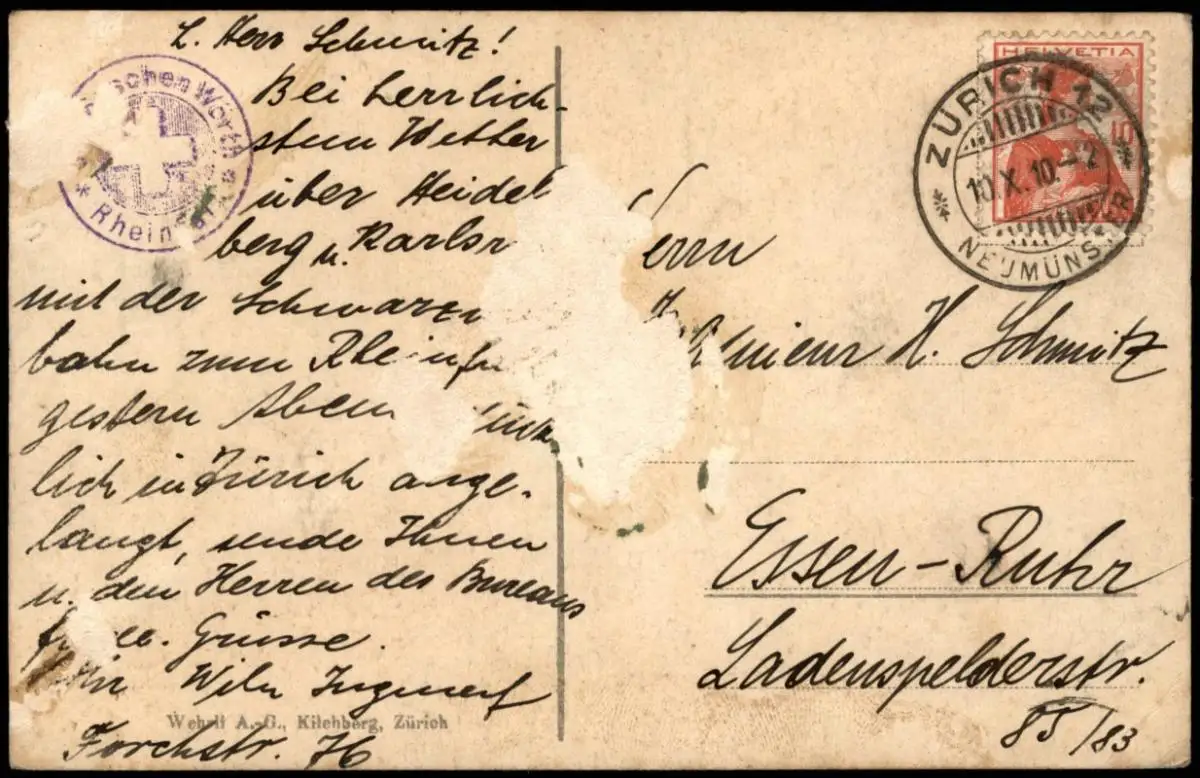 L. Herr Schmitz!
Bei herrlich-
stem Wetter
über Heidel
berg u. Karlsr
mit der Schwarzw
bahn zum Rheinfa
gestern Aben
lich in Zürich ange-
langt, sende Ihnen
u. den Herren des Bureaus
Grüsse.
Wilh
Forchstr. 76
Wehrli A.-G., Kilchberg, Zürich
schen Wörth
Rhein
HELVETIA
ZÜRICH 12
10.X.10.
NEUMÜNSTER
Herrn
H. Schmitz
Essen-Ruhr
Ladenspelderstr.
85/83